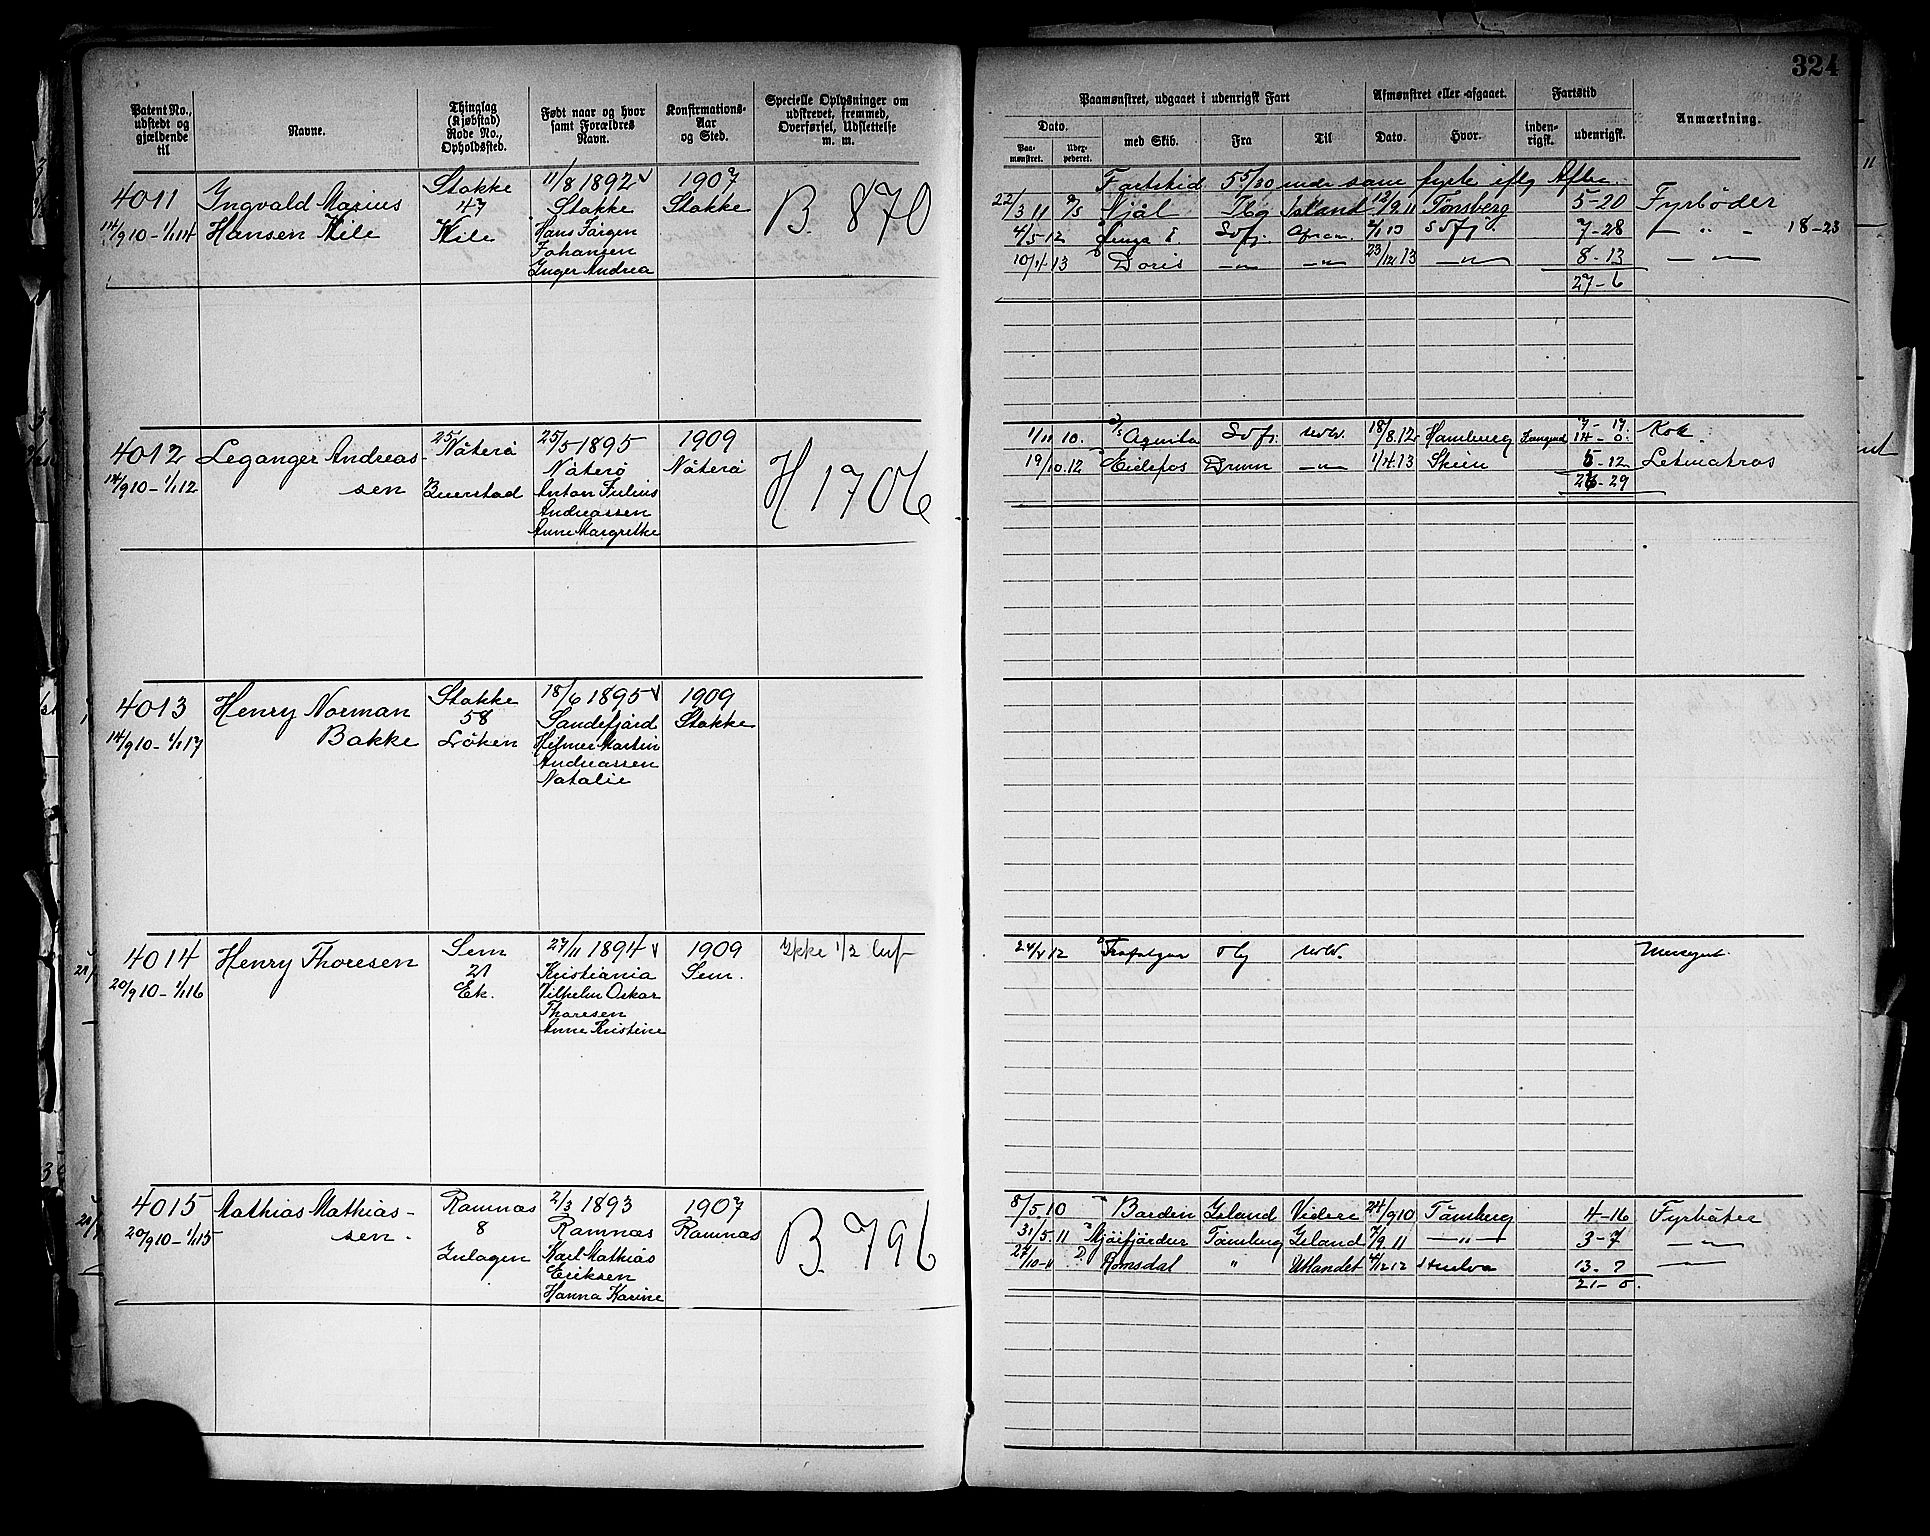 324
Patent No., udstedt og gjældende til
Navne.
Thinglag (Kjøbstad) Rode No., Opholdssted.
Født naar og hvor samt Forældres Navn.
Konfirmations-Aar og Sted.
Specielle Oplysninger om udskrevet, fremmed, Overførsel, Udslettelse m. m.
Paamønstret, udgaaet i udenrigsk Fart
Afmønstret eller afgaaet.
Fartstid
Anmærkning.
Dato.
Paamønstret.
med Skib.
Fra
Til
Dato.
Hvor.
indenrigsk.
udenrigsk.
4011
14/9 10 – 1/1 14
Ingvald Marius
Hansen Kile
Stokke
47
Kile
11/8 1892 v
Stokke
Hans Jørgen
Johansen
Inger Andrea
1907
Stokke
B. 870
Fartstid 5 5/30 mdr som fyrb. iflg
22/3 11 Njål Tbg Island 12/9 11 Tønsberg 5-20 Fyrbøder
4/5 12 Sdfj. 7-28 – " – 18-23
10/4 13 Doris – " – – " – 23/12 13 – " – 8-13 – " –
27-6
4012
14/9 10 – 1/1 12
Leganger Andreas-
sen
25/ Nøterø
Buerstad
25/5 1895
Nøterø
Anton Julius
Andreassen
Anne Margrethe
1909
Nøterø
H 1706
1/11 10. Aquila Sdfj. udl. 18/8 12 Hamburg 14-0 Kok.
19/10 12 Eidsfos Dramn – " – 1/4 13 Skien 5-12 Letmatros
26-29
4013
14/9 10 – 1/1 17
Henry Norman
Bakke
Stokke
58
Løken
18/6 1895 v
Sandefjord
Hilmer Martin
Andreassen
Natalie
1909
Stokke
4014
20/9 10 – 1/1 16
Henry Thoresen
Sem
21
Ek.
27/11 1894 v
Kristiania
Vilhelm Oskar
Thoresen
Anne Kristine
1909
Sem.
Ikke 1/2
24/ 12 Trafalgar Tbg udl. Messegut.
4015
20/9 10 – 1/1 15
Mathias Mathias-
sen.
Ramnæs
8
Inlagen
2/3 1893
Ramnæs
Karl Mathias
Eriksen
Hanna Karine
1907
Ramnæs
B. 796
8/5 10 Barden Island Videre 24/9 10 Tønsberg 4-16 Fyrbøter
31/5 11 Mjöifjördur Tønsberg Island 7/9 11 – " – 3-7 – " –
27/10 11 D. Romsdal " Utlandet 4/12 12 Huelva 13-7 –
21-0.